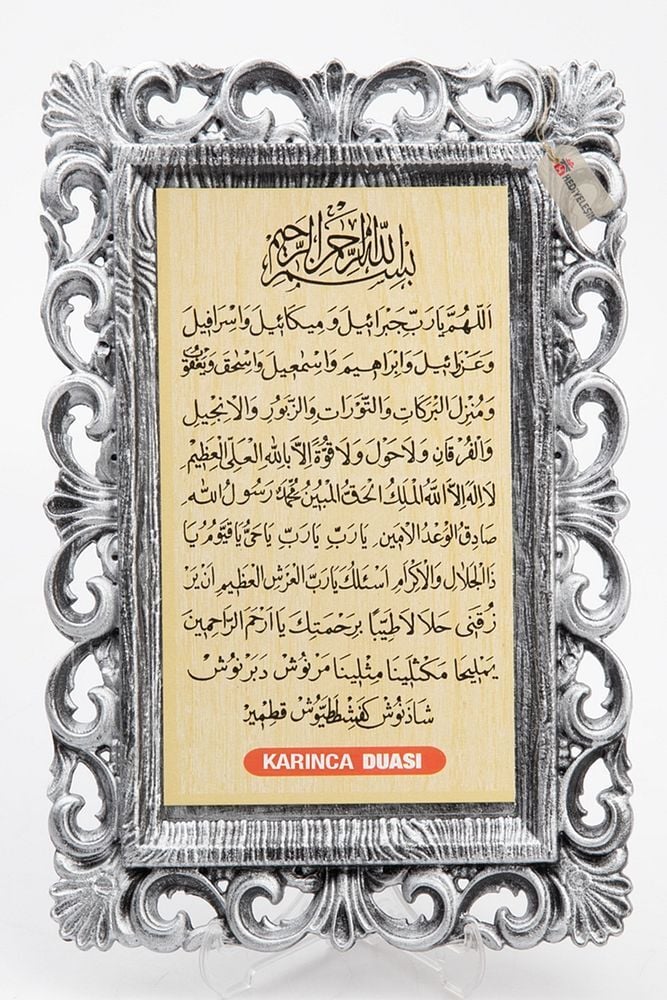 بسم الله الرحمن الرحيم
اَللّٰهُمَّ يَارَبَّ جَبْرَائِيلَ وَمِيكَائِيلَ وَاِسْرَافِيلَ
وَعَزْرَائِيلَ وَاِبْرَاهِيمَ وَاِسْمٰعِيلَ وَاِسْحٰقَ وَيَعْقُوبَ
وَمُنْزِلَ الْبَرَكَاتِ وَالتَّوْرَاتِ وَالزَّبُورِ وَالْاِنْجِيلِ
وَالْفُرْقَانِ وَلَاحَوْلَ وَلَاقُوَّةَ اِلَّا بِاللّٰهِ الْعَلِىِّ الْعَظِيمِ
لَااِلٰهَ اِلَّا اللّٰهُ الْمَلِكُ الْحَقُّ الْمُبِينُ مُحَمَّدٌ رَسُولُ اللّٰهِ
صَادِقُ الْوَعْدُ الْاَمِينِ يَارَبِّ يَارَبِّ يَارَبِّ يَاحَىُّ يَاقَيُّومُ يَا
ذَا الْجَلَالِ وَالْاِكْرَامِ اَسْئَلُكَ يَارَبَّ الْعَرْشِ الْعَظِيمِ اَنْ يَرْ
زُقَنِى حَلَالًا طَيِّبًا بِرَحْمَتِكَ يَا اَرْحَمَ الرَّاحِمِينَ
يَمْلِيخَا مَكْثَلِينَا مِثْلِينَا مَرْنُوشْ دَبَرْنُوشْ
شَاذَنُوشْ كَفَشْطَطَيُّوشْ قِطْمِيرْ
KARINCA DUASI